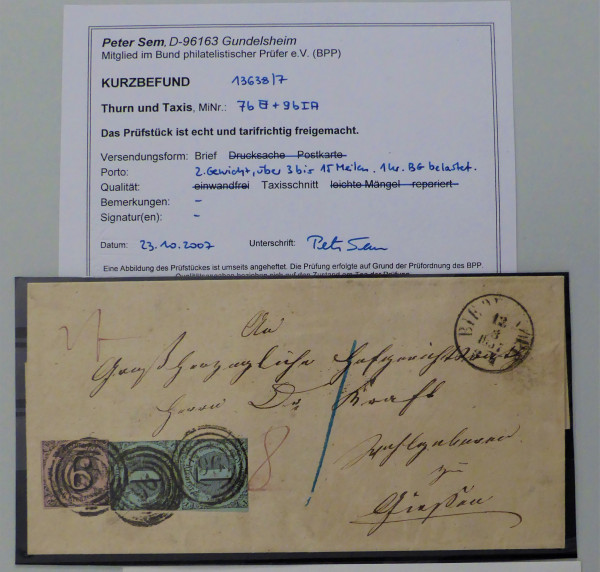 Peter Sem, D-96163 Gundelsheim
Mitglied im Bund philatelistischer Prüfer e.V. (BPP)
KURZBEFUND 13638/7
Thurn und Taxis, MiNr.: 7b + 9b IA
Das Prüfstück ist echt und tarifrichtig freigemacht.
Versendungsform: Brief Drucksache Postkarte
Porto: 2. Gewicht, über 3 bis 15 Meilen. 1 kr. BG belastet.
Qualität: einwandfrei Taxisschnitt leichte Mängel repariert
Bemerkungen: -
Signatur(en): -
Datum: 23.10.2007 Unterschrift: Peter Sem
Eine Abbildung des Prüfstückes ist umseits angeheftet. Die Prüfung erfolgte auf Grund der Prüfordnung des BPP.
An
Großherzogliche
Herrn Dr. Kraft
Wohlgeboren
zu
Giessen
8